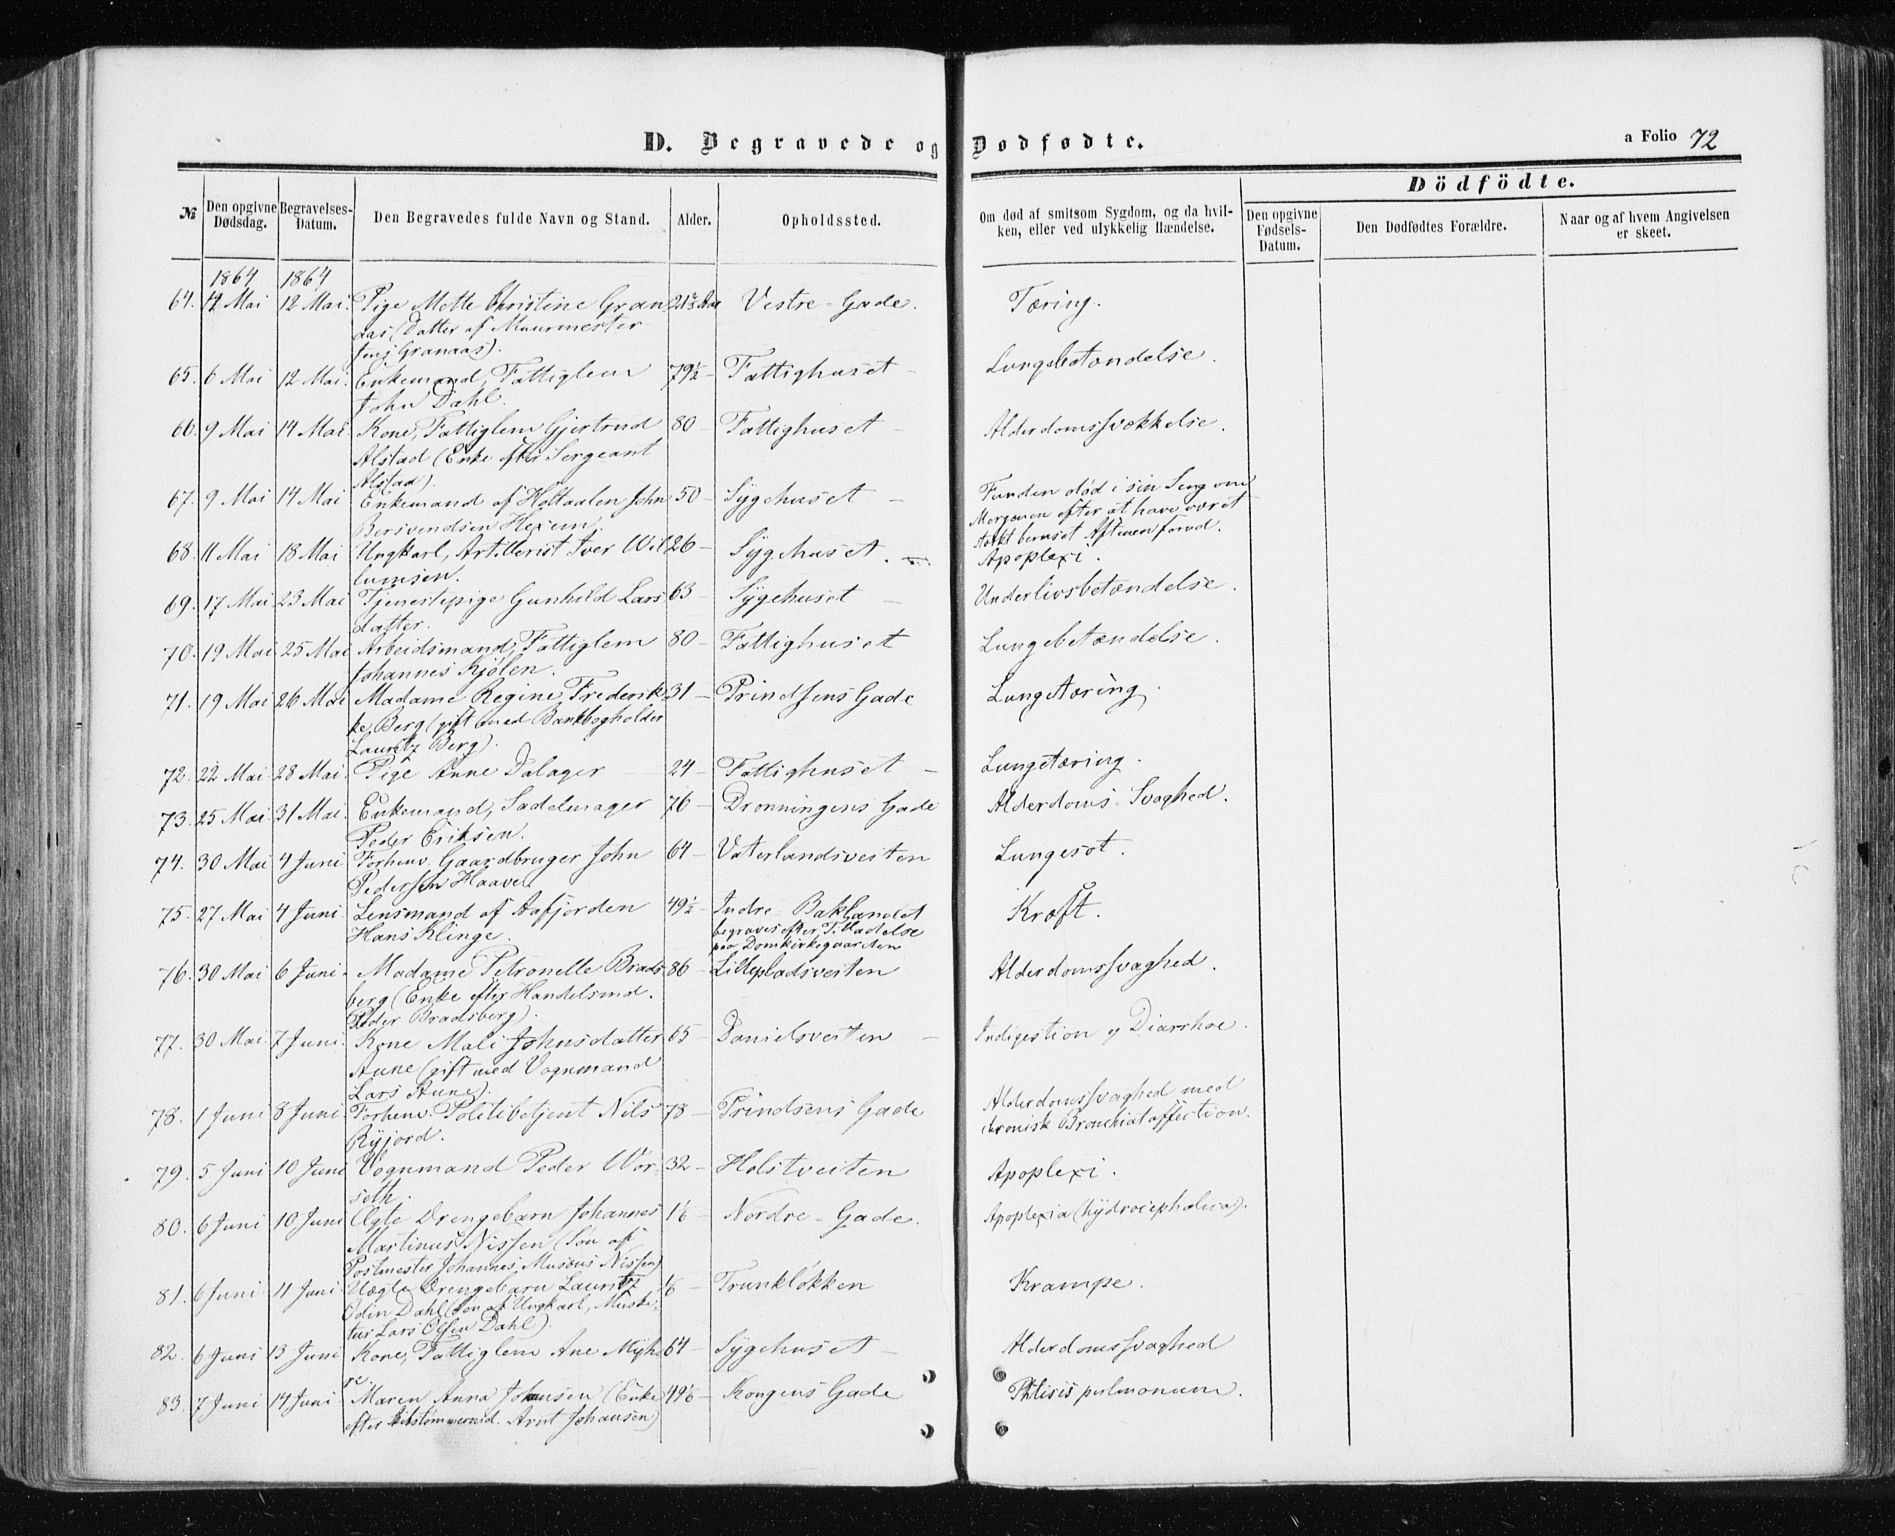 D. Begravede og Dødfødte.
a Folio 72
Dödfödte.
№ Den opgivne Dødsdag. Begravelses-Datum. Den Begravedes fulde Navn og Stand. Alder. Opholdssted. Om død af smitsom Sygdom, og da hvilken, eller ved ulykkelig Hændelse. Den opgivne Fødsels-Datum. Den Dødfødtes Forældre. Naar og af hvem Angivelsen er skeet.
1864 1864
64. 4 Mai 12 Mai. Pige Mette Christine Gran 21 2/3 Aar Vestre-Gade. Tæring.
aas, (Datter af Muurmester
Jens Granaas).
65. 6 Mai 12 Mai. Enkemand, Fattiglem 79½ – Fattighuset – Lungebetændelse.
John Dahl.
66. 9 Mai 14 Mai. Kone, Fattiglem Gjertrud 80 – Fattighuset – Alderdomssvækkelse.
Alstad (Enke efter Sergeant
Alstad).
67. 9 Mai 14 Mai Enkemand af Holtaalen John 50 – Sygehuset – Funden død i sin Seng om
Bersvendsen Hexem. Morgenen efter at have været
stærkt beruset Aftenen forud.
68. 11 Mai 18 Mai Ungkarl, Artillerist Iver Wil 26 – Sygehuset. – Apoplexi.
lumsen.
69. 17 Mai 23 Mai Tjenestepige Gunhild Lars 63 – Sygehuset – Underlivsbetændelse.
datter.
70. 19 Mai 25 Mai Arbeidsmand, Fattiglem 80 – Fattighuset Lungebetændelse.
Johannes Kjølen.
71. 19 Mai 26 Mai Madame Regine Frederik 31 – Prindsens Gade Lungetæring.
ke Berg (gift med Bankbogholder
Lauritz Berg).
72. 22 Mai 28 Mai. Pige Anne Dalager 24 – Fattighuset – Lungetæring.
73. 25 Mai 31 Mai. Enkemand, Sadelmager 76 – Dronningens Gade Alderdoms-Svaghed.
Peder Eriksen.
74. 30 Mai 4 Juni Forhenv. Gaardbruger John 64 – Vaterlandsveiten Lungesot.
Pedersen Haaven
75. 27 Mai 4 Juni. Lensmand af Aafjorden 49½ – Indre-Baklandet Kræft.
Hans Klinge. begraves efter Tilladelse
paa Domkirkegaarden
76. 30 Mai 6 Juni. Madame Petronelle Brads 86 – Lillepladsveiten Alderdomssvaghed.
berg (Enke efter Handelsmd.
Peder Bradsberg).
77. 30 Mai 7 Juni. Kone Mali Johnsdatter 65 – Danielsveiten – Indigestion og Diarrhoe.
Aune (gift med Vognmand
Lars Aune).
78. 1 Juni 8 Juni Forhenv. Politibetjent Nils 78 – Prindsens Gade Alderdomssvaghed med
Ryjord. chronisk Bronchiataffection.
79. 5 Juni 10 Juni Vognmand Peder Wor- 32 – Holstveiten Apoplexi.
seth.
80. 6 Juni 10 Juni Ægte Drengebarn Johannes 1/6 – Nordre-Gade. Apoplexia (hydrocephalica).
Martinus Nissen (Søn af
Postmester Johannes Musæus Nissen)
81. 6 Juni 11 Juni Uægte Drengebarn Lauritz 1/6 – Trunkløkken Krampe.
Odin Dahl (Søn af Ungkarl, Muske-
teer Lars Olsen Dahl).
82. 6 Juni 13 Juni Kone, Fattiglem Ane Myh 64 – Sygehuset – Alderdomssvaghed
re.
83. 7 Juni 14 Juni Maren Anna Johansen (Enke 49 1/6 – Kongens Gade Phtisis pulmonum.
efter Skibstømmermd. Arnt Johansen)